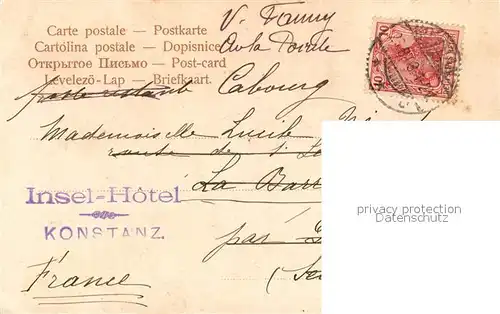 Carte postale — Postkarte
Cartolina postale — Dopisnice
Открытое Письмо — Post-card
Levelező-Lap — Briefkaart.
V. Fanny
poste restante Cabourg
Mademoiselle Lucile
route de
La Barr
Insel-Hôtel
KONSTANZ.
par
France
privacy protection
Datenschutz